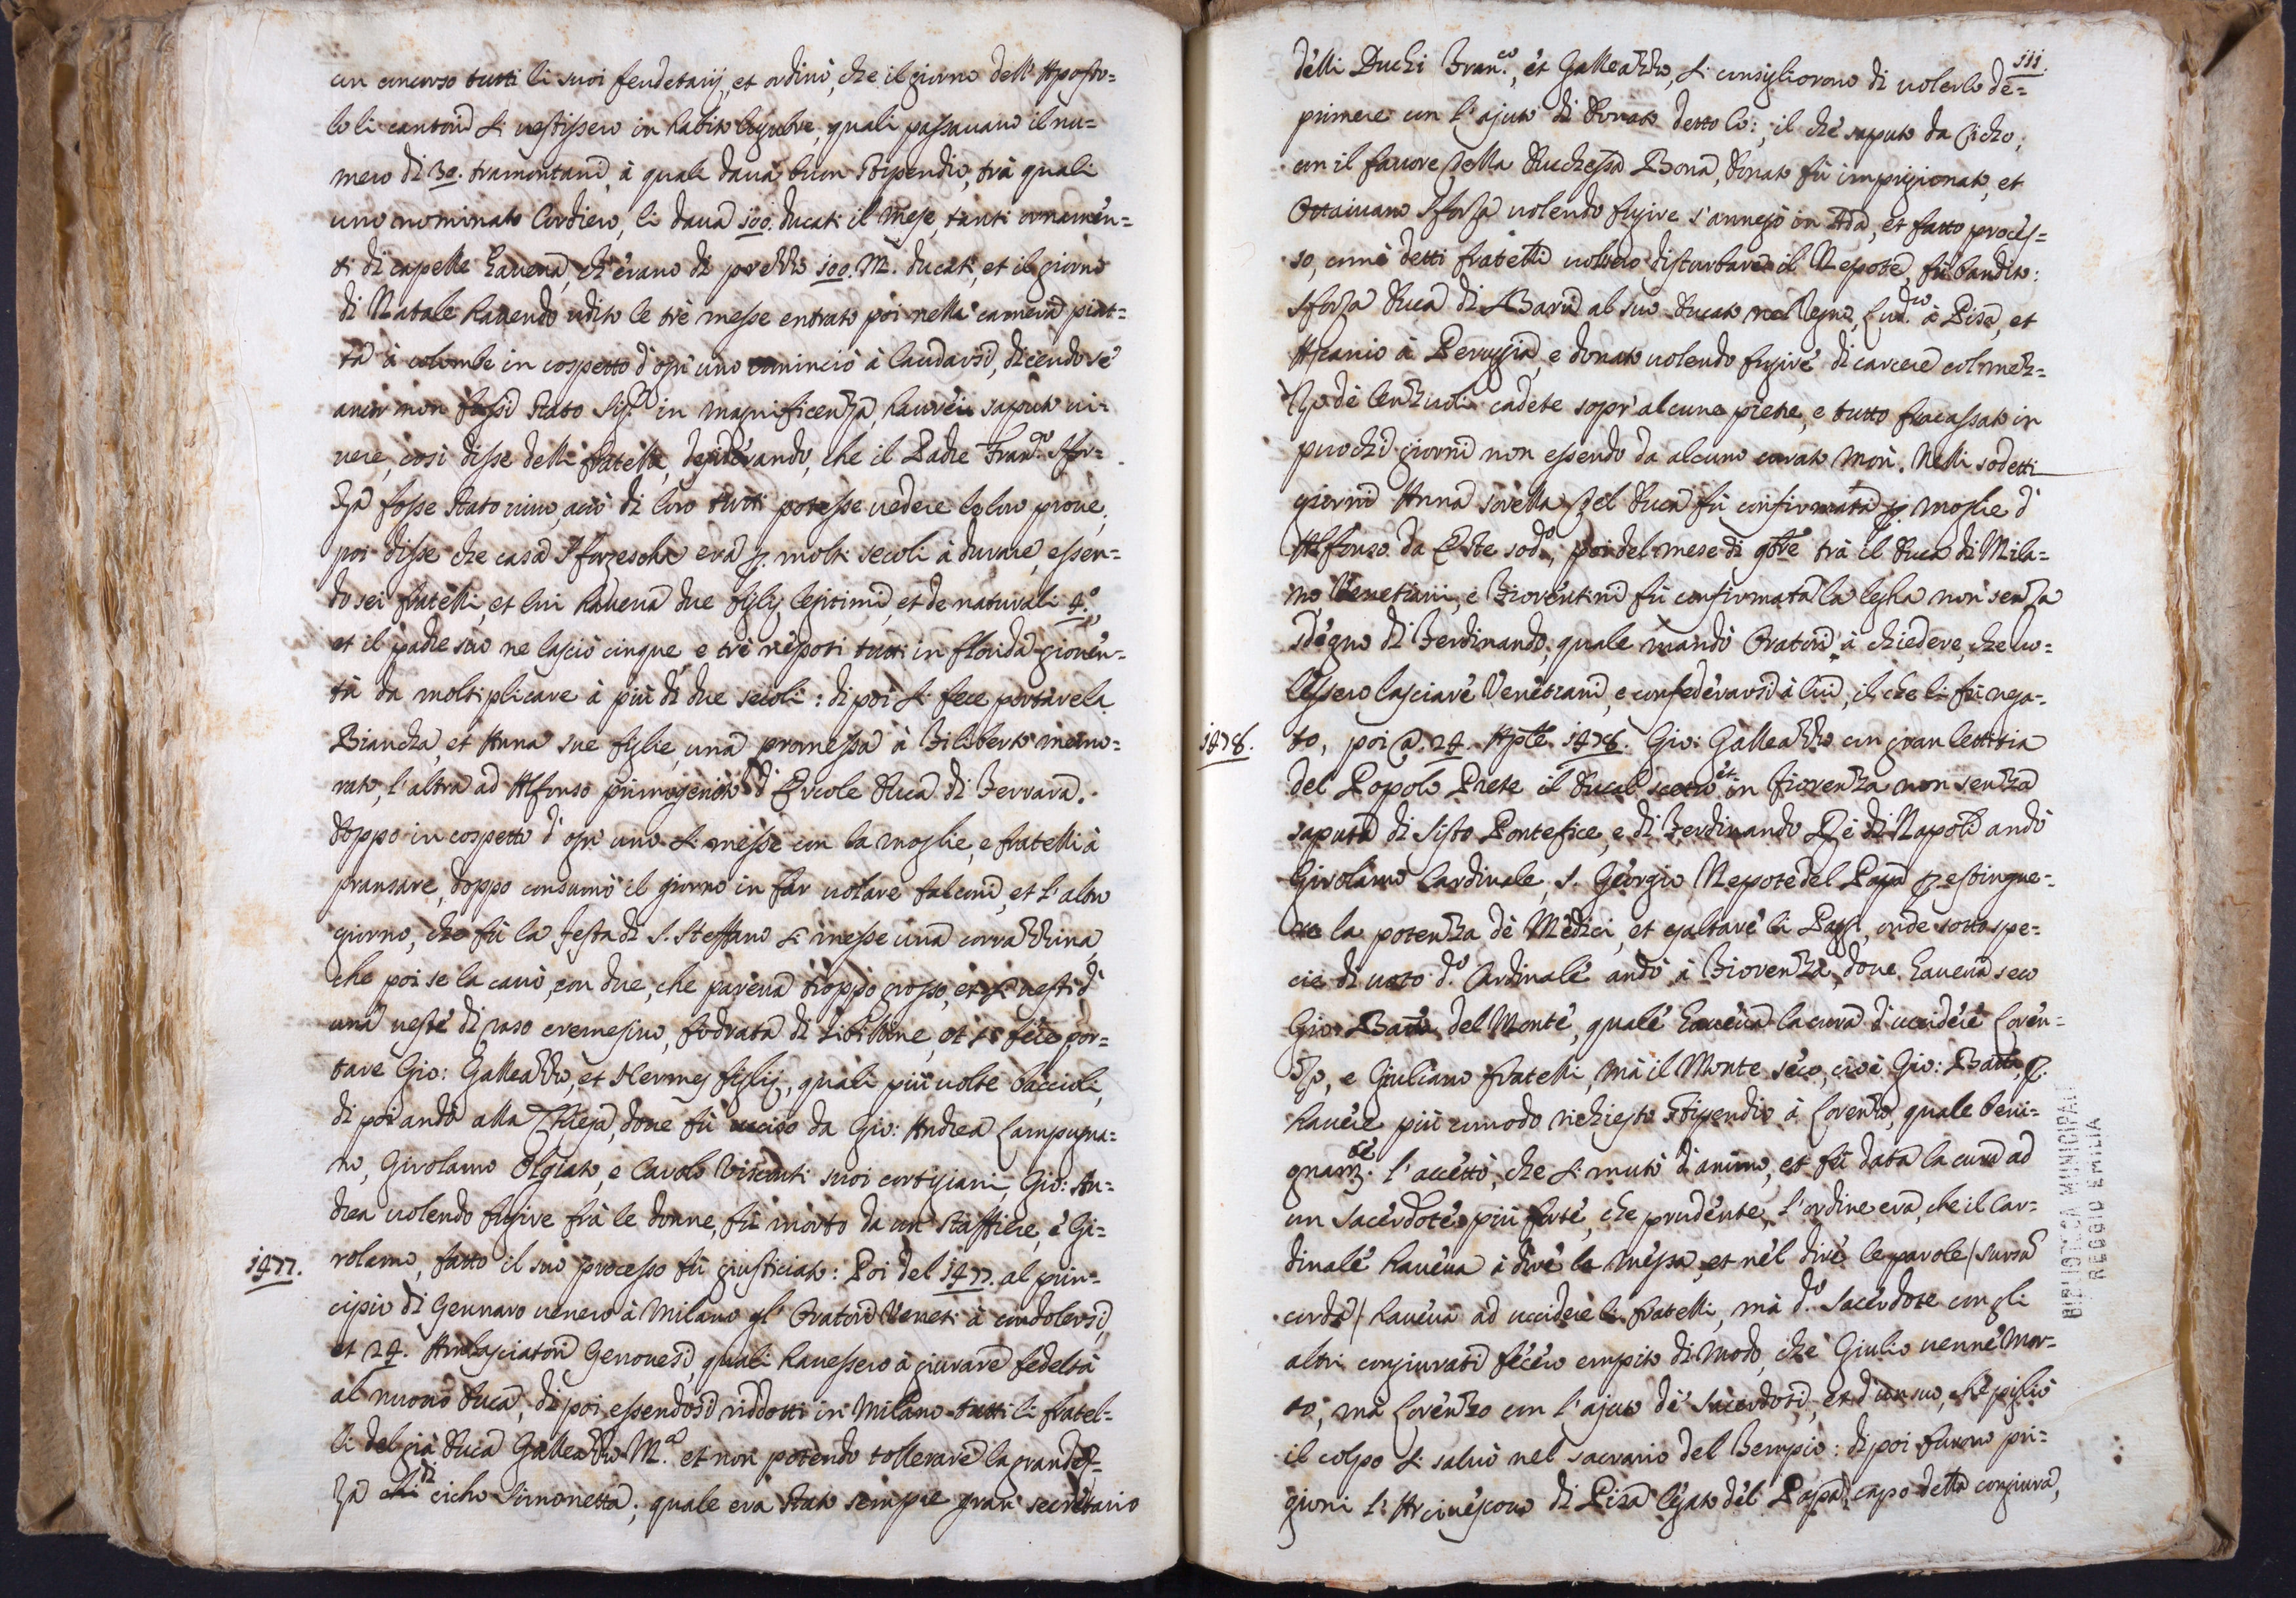 con concorso tutti li suoi feudetarij, et ordinò, che il giorno dell'Aposto=
lo li cantori si uestissero in habito lugubre, quali passauano il nu=
mero di 30. tramontani, à quale daua buon stipendio, trà quali
uno nominato Cordiero, li daua 100. ducati il mese, tanti ornamen=
ti di capelle haueua, ch'erano di prezzo 100. M. ducati, et il giorno
di Natale hauendo udito le trè messe entrato poi nella camera piat=
ta à colombe in cospetto d'ogn'uno cominciò à laudarsi, dicendo se
ancor non fossi stato Sig.r in magnificenza, haurei saputo ui=
uere, così disse delli fratelli, desiderando, che il Padre Fran.co Sfor=
za fosse stato uiuo, acciò di loro tutti potesse uedere le loro proue,
poi disse che casa Sforzescha era p. molti secoli à durare, essen=
do sei fratelli, et lui haueua due figlij legitimi, et de naturali 4.o,
et il padre suo ne lasciò cinque, e trè nepoti tutti in florida giouen=
tù da moltiplicare à più di due secoli: di poi si fece portare la
Biancha, et Anna sue figlie, una promessa à Filiberto
l'altra ad Alfonso primogenito d'Ercole Duca di Ferrara.
Doppo in cospetto d'ogn'uno si messe con la moglie, e fratelli à
pransare, doppo consumò il giorno in far uolare falconi, et l'altro
giorno, che fù la festa di S. Steffano si messe una corrazzina,
che poi se la cauò, con due, che pareua troppo grosso, et si uestì d'
una ueste di raso cremesino, fodrata di Sibilline, et si fece por=
tare Gio: Galleazzo, et Hermes figlij, quali più uolte bacciolì,
di poi andò alla Chiesa, doue fù ucciso da Gio: Andrea Lampugna=
no, Girolamo Olgiato, e Carolo Visconti suoi cortigiani, Gio: An=
drea uolendo fugire frà le donne, fù morto da un staffiere, è Gi=
1477.
rolamo, fatto il suo processo fù giusticiato: Poi del 1477. al prin=
cipio di Gennaro uenero à Milano gl'Oratori Veneti à condolersi,
et 24. Ambasciatori Genouesi, quali hauessero à giurare fedeltà
al nuouo Duca, di poi essendosi riddotti in Milano tutti li fratel=
li del già Duca Galleazzo M.a et non potendo tollerare la grandez=
za di cicho Simonetta, quale era stato sempre gran secretario
111.
delli Duchi Fran.co, et Galleazzo, si consigliorono di uolerlo de=
primere con l'ajuto di Donato detto lo:, il che saputo da Cicho,
con il fauore della Duchessa Bona, Donato fù imprigionato, et
Ottauiano Sforza uolendo fugire s'annegò in Ada, et fatto proces=
so, come detti fratelli uolsero disturbare il Nepote, fù bandito:
Sforza Duca di Bari al suo Ducato nel Regno, Lud.co à Pisa, et
Ascanio à Peruggia, e donato uolendo fugire di carcere col mez=
zo de lenzuoli cadete sopr'alcune pietre, e tutto fracassato in
puochi giorni non essendo da alcuno curato morì. Nelli sodetti
giorni Anna sorella del Duca fù confirmata p. moglie d'
Alfonso da Este sod.o, poi del mese di 9bre trà il Duca di Mila=
no, Venetiani, e Fiorentini fù confirmata la legha non senza
sdegno di Ferdinando, quale mandò Oratori à chiedere, che uo=
lessero lasciare Venetiani, e confederarsi à lui, il che li fù nega=
1478.
to, poi 24. Aple 1478. Gio: Galleazzo con gran lettitia
del Popolo Prete il Ducal scetro, et in Fiorenza non senza
saputa di Sisto Pontefice, e di Ferdinando Rè di Napoli andò
Girolamo Cardinale, S. Georgio Nepote del Papa p. estingue=
re la potenza de Medici, et esaltare li Pazzi, onde sotto spe=
cie di uoto d.o Cardinale andò à Fiorenza, doue haueua seco
Gio: Batta del Monte, quale haueua la cura d'uccidere Loren=
zo, e Giuliano fratelli, mà il Monte seco, cioè Gio: Batta, p.
hauere più comodo richiesto stipendio à Lorenzo, quale beni=
gnam.te l'accettò, che si mutò d'animo, et fù data la cura ad
un Sacerdote più forte, che prudente, l'ordine era, che il Car=
dinale haueua à dire la messa, et nel dire le parole (sursu
corda) haueua ad uccidere li fratelli, mà d.o Sacerdote con gli
altri congiurati fecero empito di modo, che Giulio uenne mor=
to, ma Lorenzo con l'ajuto de' Sacerdoti, et d'un suo, che pigliò
il colpo si saluò nel sacrario del Tempio: di poi furono pri=
gioni l'Arciuescouo di Pisa legato del Papa, capo della congiura,
BIBLIOTECA MUNICIPALE
REGGIO EMILIA